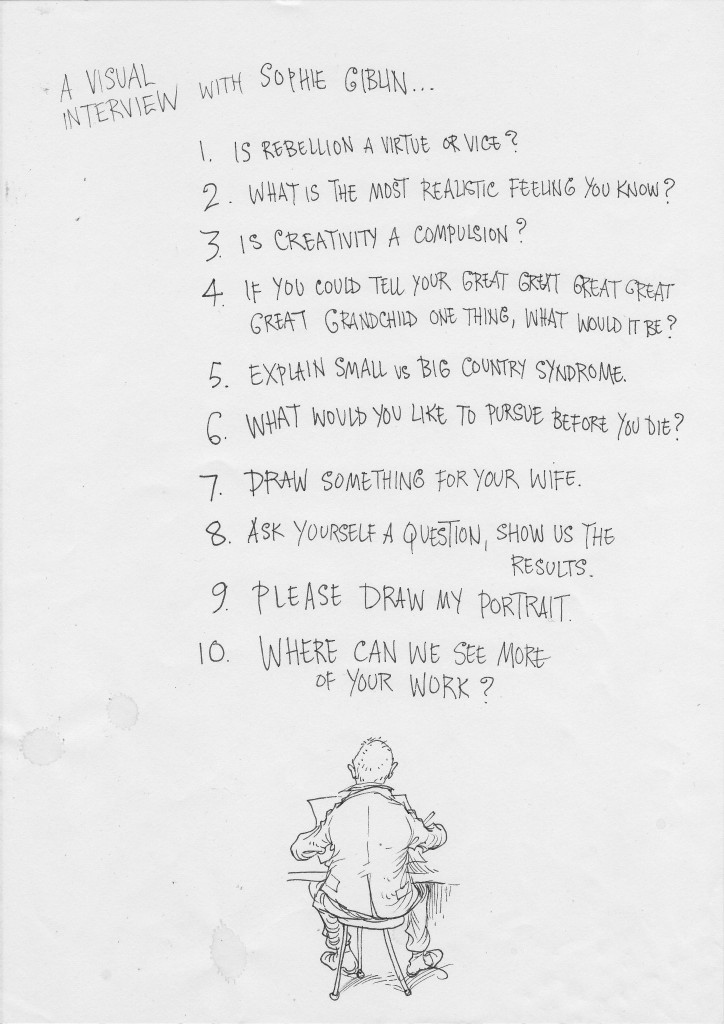 A VISUAL
INTERVIEW WITH SOPHIE GIBLIN...
1. IS REBELLION A VIRTUE OR VICE?
2. WHAT IS THE MOST REALISTIC FEELING YOU KNOW?
3. IS CREATIVITY A COMPULSION?
4. IF YOU COULD TELL YOUR GREAT GREAT GREAT GREAT
GREAT GRANDCHILD ONE THING, WHAT WOULD IT BE?
5. EXPLAIN SMALL VS BIG COUNTRY SYNDROME.
6. WHAT WOULD YOU LIKE TO PURSUE BEFORE YOU DIE?
7. DRAW SOMETHING FOR YOUR WIFE.
8. ASK YOURSELF A QUESTION, SHOW US THE
RESULTS.
9. PLEASE DRAW MY PORTRAIT.
10. WHERE CAN WE SEE MORE
OF YOUR WORK?